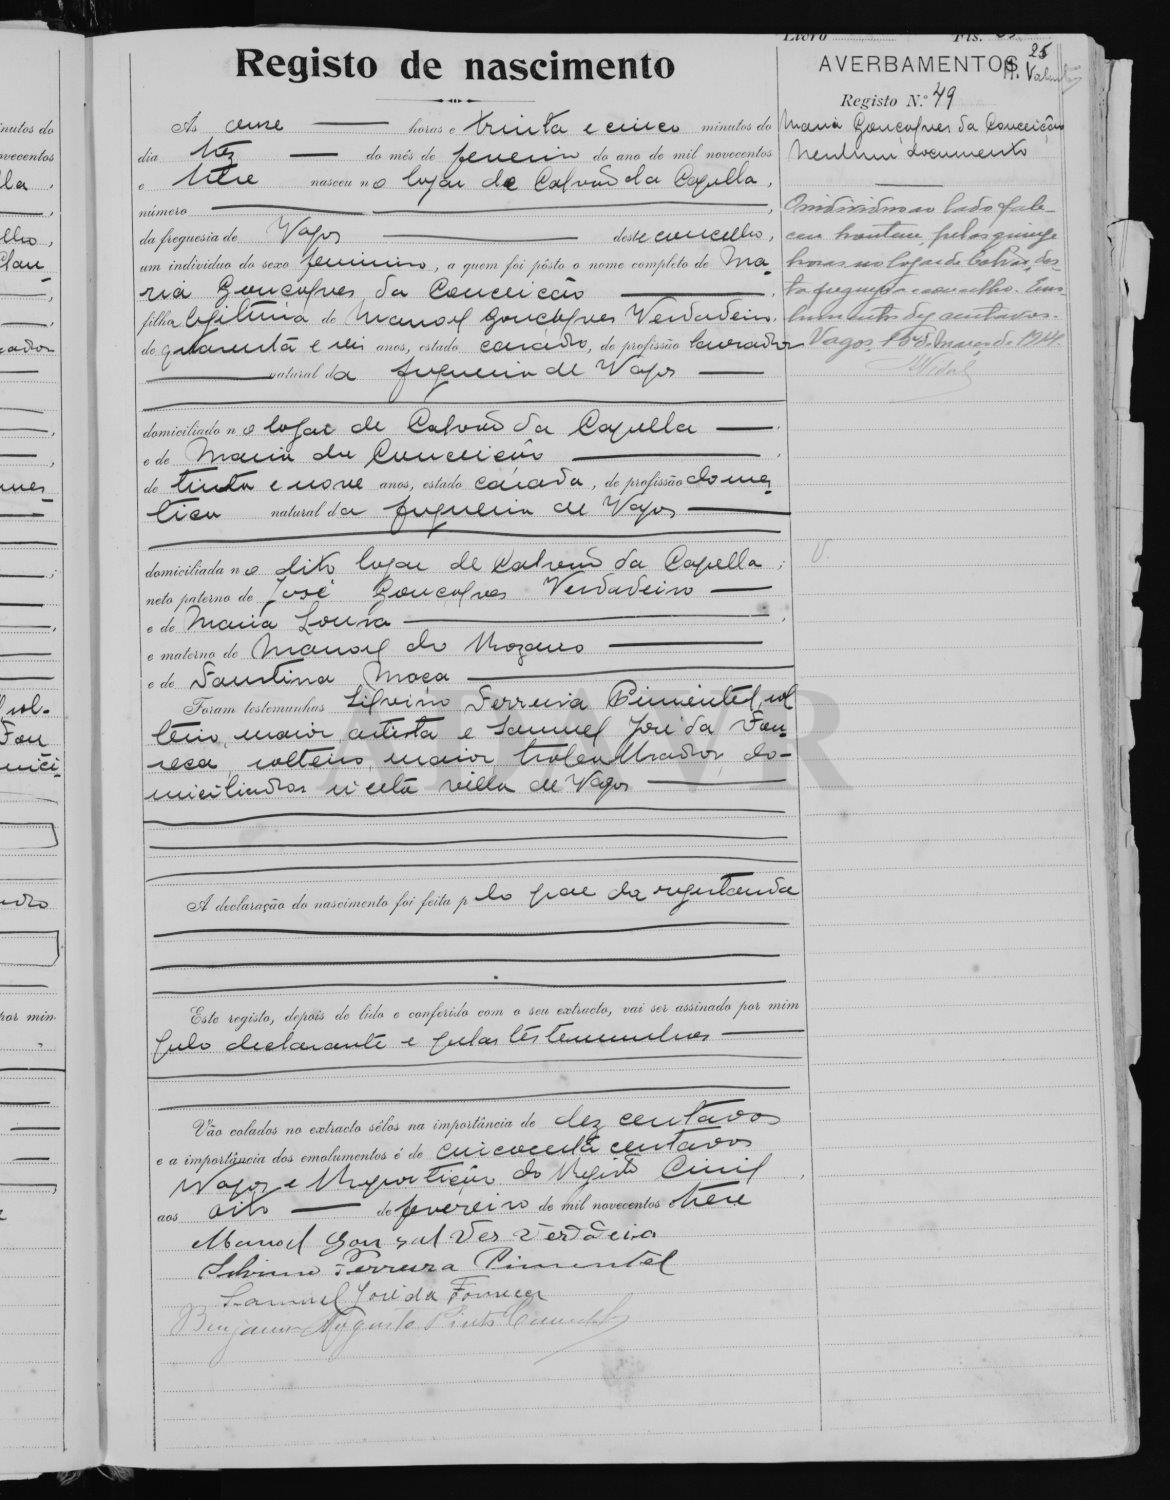 Registo de nascimento
Ás onze horas e trinta e cinco minutos do
dia trez do mês de fevereiro do ano de mil novecentos
e treze nasceu no logar de Calvão da Capella,
número
da freguesia de Vagos deste concelho,
um individuo do sexo feminino, a quem foi pôsto o nome completo de Ma-
ria Gonçalves da Conceição
filha legitima de Manoel Gonçalves Verdadeiro,
de quarenta e seis anos, estado casado, de profissão lavrador
natural da freguesia de Vagos
domiciliado no logar de Calvão da Capella
e de Maria da Conceição
de trinta e nove anos, estado casada, de profissão domes-
tica natural da freguesia de Vagos
domiciliada no dito logar de Calvão da Capella;
neto paterno de José Gonçalves Verdadeiro
e de Maria Loura
e materno de Manoel do Rozario
e de Faustina Moça
Foram testemunhas Silvino Ferreira Pimentel, sol
teiro, maior, artista e Samuel José da Fon-
seca, solteiro, maior, trabalhador, do-
miciliados n'esta villa de Vagos
A declaração do nascimento foi feita pelo pae da registanda
Este registo, depois de lido e conferido com o seu extracto, vai ser assinado por mim
pelo declarante e pelas testemunhas
Vão colados no extracto sêlos na importância de dez centavos
e a importância dos emolumentos é de cincoenta centavos
Vagos e Repartição do Registo Civil
aos oito de fevereiro de mil novecentos e treze
Manoel Gonsalves Verdadeiro
Silvino Ferreira Pimentel
Samuel José da Fonseca
Benjamim Augusto Pinto
Livro Fls.
25
AVERBAMENTOS
Registo N.º 49
Maria Gonçalves da Conceição
Nenhum documento
O individuo ao lado fale-
ceu hontem, pelas quinze
horas no logar de Calvão, des-
ta freguesia e concelho. Emo-
lumentos dez centavos.
Vagos, 16 de Março de 1914.
Vidal
ADAVR